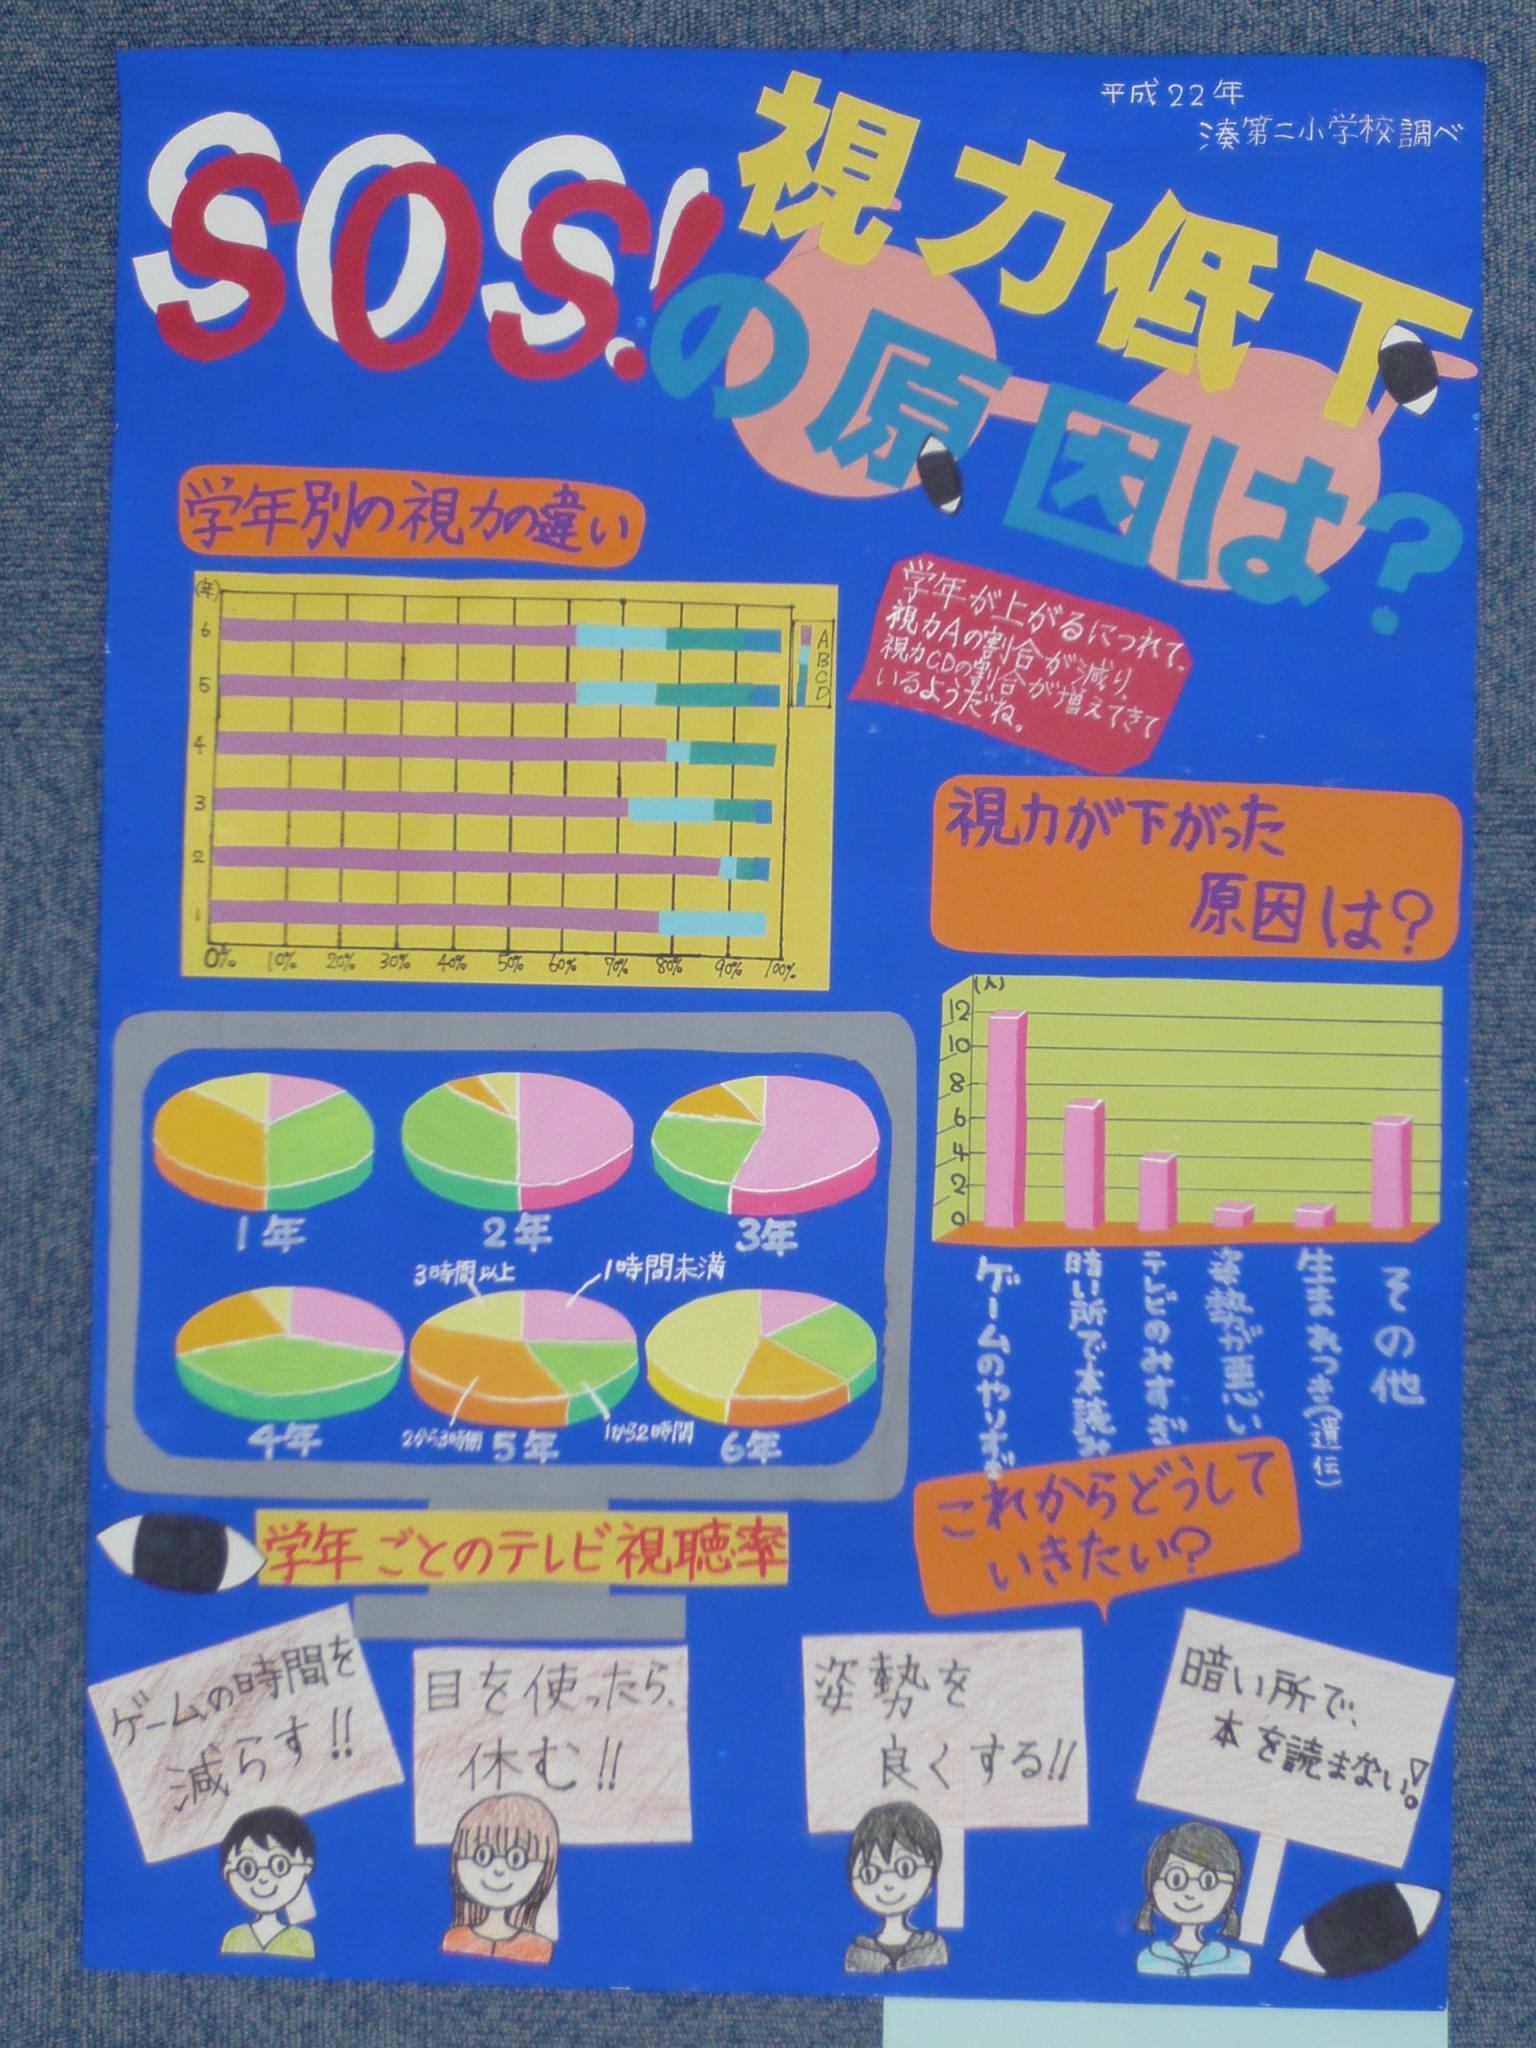 平成22年
湊第二小学校調べ
SOS!
視力低下
の原因は?
学年別の視力の違い
(年)
6
5
4
3
2
1
0% 10% 20% 30% 40% 50% 60% 70% 80% 90% 100%
A
B
C
D
学年が上がるにつれて、
視力Aの割合が減り、
視力CDの割合が増えてきて
いるようだね。
視力が下がった
原因は?
(人)
12
10
8
6
4
2
0
ゲームのやりすぎ
暗い所で本読み
テレビのみすぎ
姿勢が悪い
生まれつき(遺伝)
その他
1年
2年
3年
3時間以上
1時間未満
4年
2から3時間
5年
1から2時間
6年
学年ごとのテレビ視聴率
これからどうして
いきたい?
ゲームの時間を
減らす!!
目を使ったら、
休む!!
姿勢を
良くする!!
暗い所で、
本を読まない!